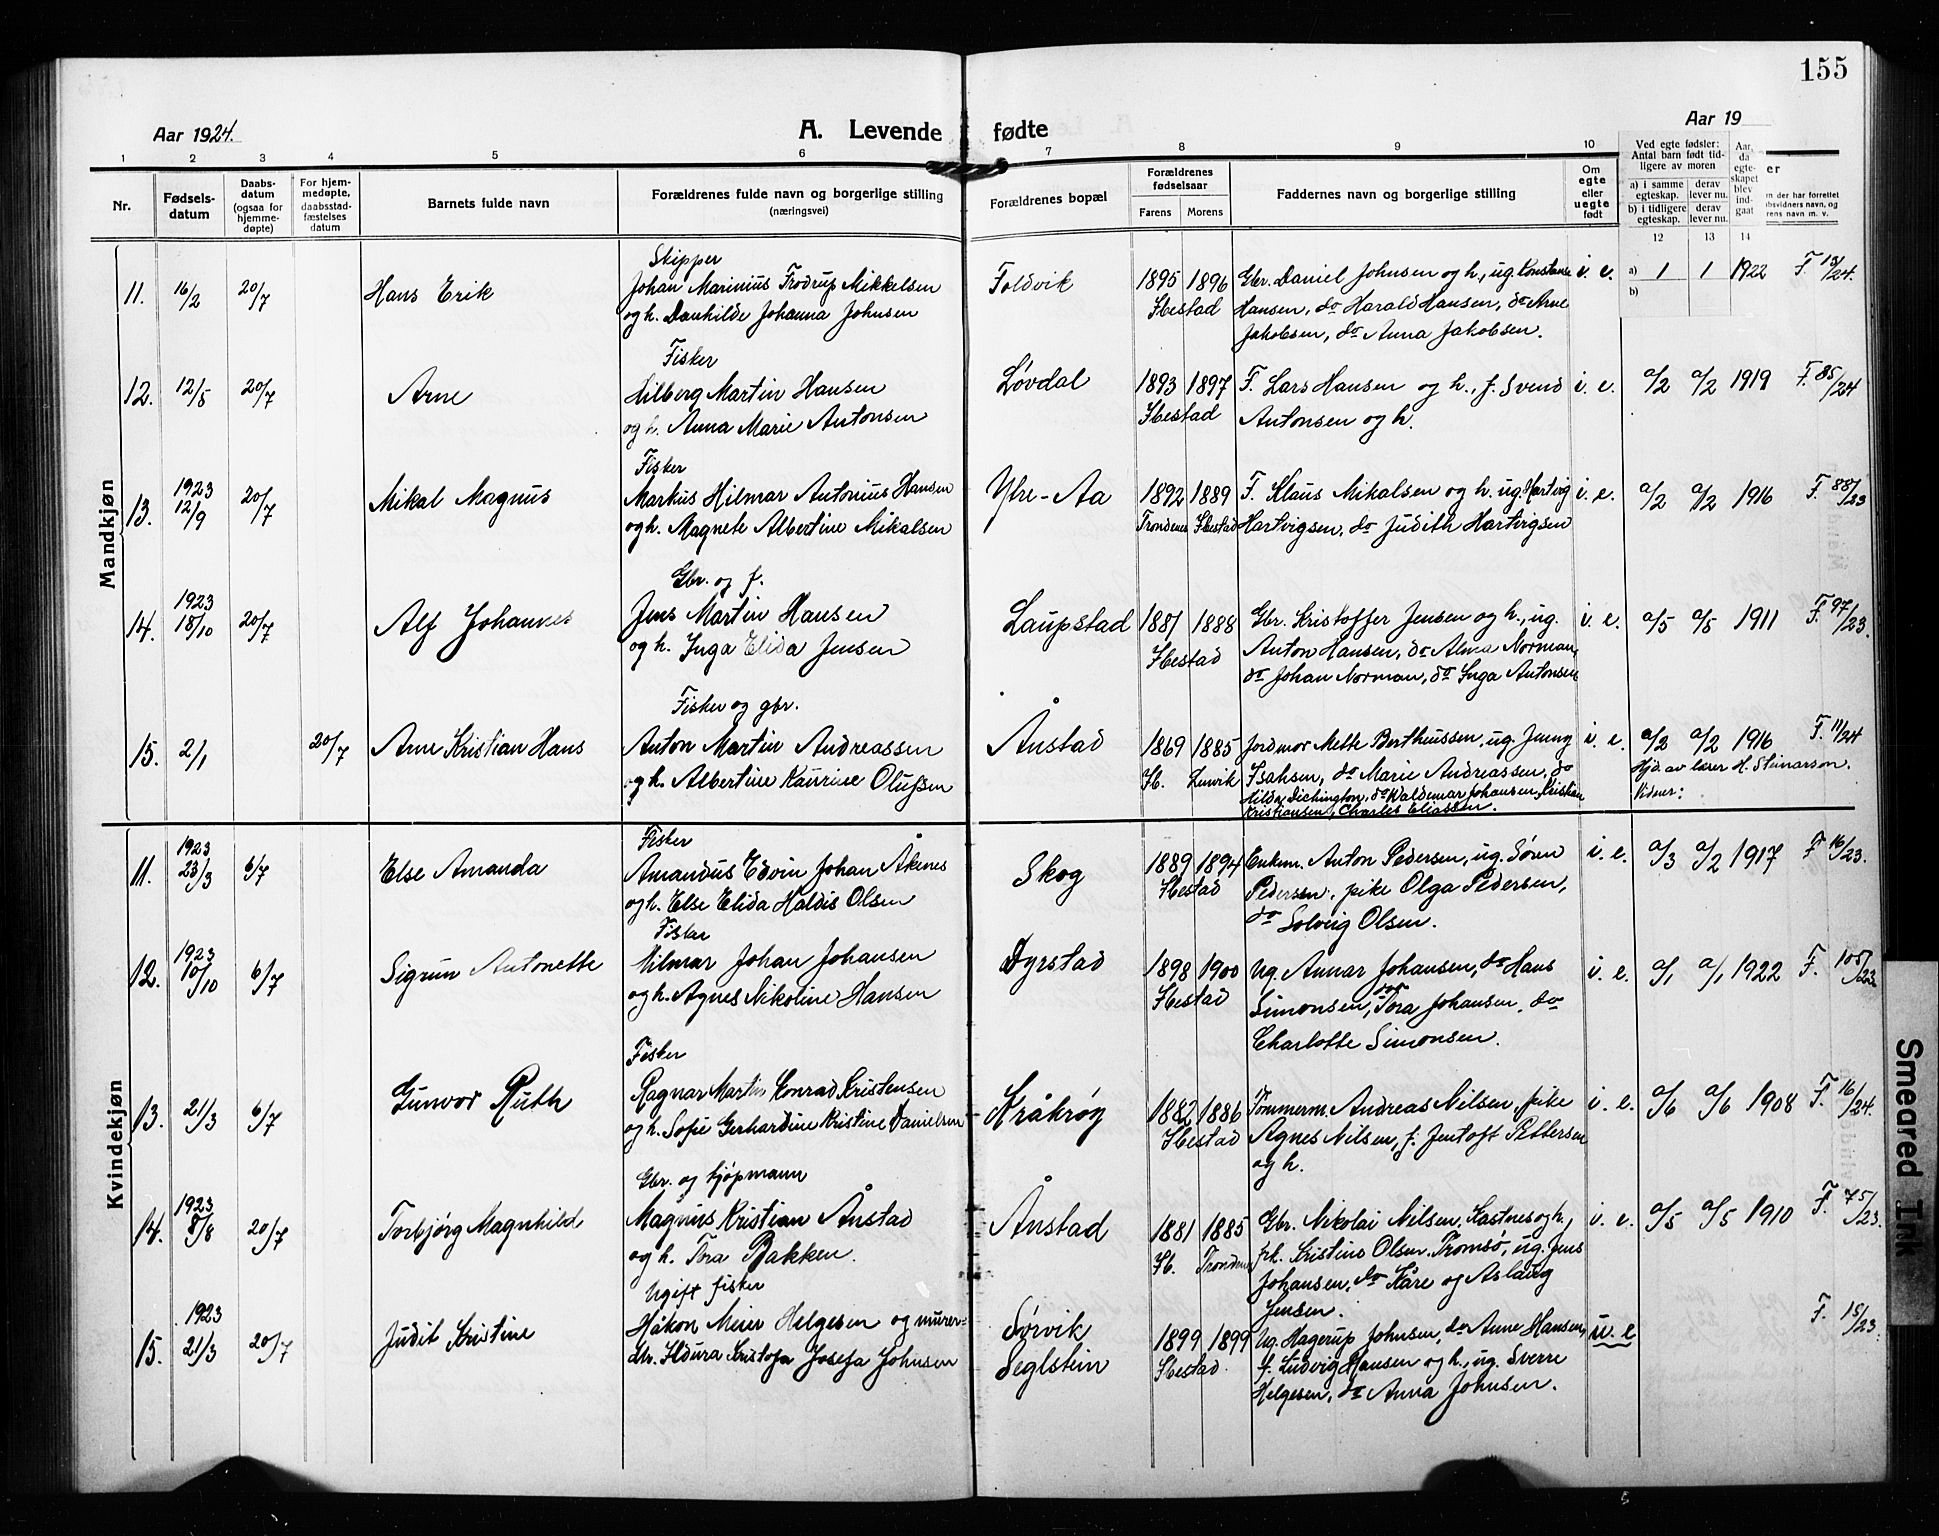 155
Aar 1924.
A. Levende fødte
Aar 19
1 2 3 4 5 6 7 8 9 10
Nr.
Fødsels-
datum
Daabs-
datum
(ogsaa for
hjemme-
døpte)
For hjem-
medøpte,
daabsstad-
fæstelses
datum
Barnets fulde navn
Forældrenes fulde navn og borgerlige stilling
(næringsvei)
Forældrenes bopæl
Forældrenes
fødselsaar
Farens Morens
Faddernes navn og borgerlige stilling
Om
egte
eller
uegte
født
Ved egte fødsler:
Antal barn født tid-
ligere av moren
a) i samme
egteskap.
derav
lever nu.
b) i tidligere
egteskap.
derav
lever nu.
Aar,
da
egte-
skapet
blev
ind-
gaat
12 13 14
er
n der har forrettet
bsvidners navn, og
rens navn m. v.
Mandkjøn
11. 16/2 20/7 Hans Erik
Skipper
Johan Marinius Frodrup Mikkelsen
og h. Danhilde Johanna Johnsen
Foldvik
1895 1896
Ibestad
Gbr. Daniel Johnsen og h., ug. Konstanse
Hansen, do Harald Hansen, do Arne
Jakobsen, do Anna Jakobsen.
i. e.
a) 1 1 1922
b)
F. 13/24.
12. 12/5 20/7 Arne
Fisker
Hilberg Martin Hansen
og h. Anna Marie Antonsen
Løvdal
1893 1897
Ibestad
F. Lars Hansen og h., f. Svend
Antonsen og h.
i. e. a/2 a/2 1919 F. 85/24
13. 1923
12/9 20/7 Mikal Magnus
Fisker
Markus Hilmar Antonius Hansen
og h. Magnete Albertine Mikalsen
Ytre-Aa
1892 1889
Trondenes Ibestad
F. Klaus Mikalsen og h. ug. Hartvig
Hartvigsen, do Judith Hartvigsen
i. e. a/2 a/2 1916 F. 88/23
14. 1923
18/10 20/7 Alf Johannes
Gbr. og f.
Jens Martin Hansen
og h. Inga Elida Jensen
Laupstad
1881 1888
Ibestad
Gbr. Kristoffer Jensen og h., ug.
Anton Hansen, do Alma Norman,
do Johan Norman, do Inga Antonsen
i. e. a/5 a/5 1911 F. 97/23.
15. 2/1 20/7 Arne Kristian Hans
Fisker og gbr.
Anton Martin Andreassen
og h. Albertine Kaurine Olufsen
Ånstad
1869 1885
Ib. Lenvik
Jordmor Mette Bertheussen, ug. Jenny
Isaksen, do Marie Andreassen, do
Hilda Dichington, do Waldemar Johansen, Kristian
Kristiansen, Charles Eliassen.
i. e. a/2 a/2 1916 F. 11/24
Hjd. av lærer H. Steinarson.
Vidner:
Kvindekjøn
11. 1923
23/3 6/7 Else Amanda
Fisker
Amandus Edvin Johan Åkenes
og h. Else Elida Haldis Olsen
Skog
1889 1894
Ibestad
Enkem. Anton Pedersen, ug. Søren
Pedersen, pike Olga Pedersen,
do Solveig Olsen.
i. e. a/3 a/2 1917 F 16/23.
12. 1923
10/10 6/7 Sigrun Antonette
Fisker
Hilmar Johan Johansen
og h. Agnes Nikoline Hansen
Dyrstad
1898 1900
Ibestad
Ug. Annar Johansen, do Hans
Simonsen, do Tora Johansen, do
Charlotte Simonsen.
i. e. a/1 a/1 1922 F. 105/23
13. 21/3 6/7 Gunvor Ruth
Fisker
Ragnar Martin Konrad Kristensen
og h. Sofie Gerhardine Kristine Danielsen
Kråkrøy
1882 1886
Ibestad
Tømmerm. Andreas Nilsen, pike
Agnes Nilsen, f. Jentoft Pettersen
og h.
i. e. a/6 a/6 1908 F. 16/24.
14. 1923
8/8 20/7 Torbjørg Magnhild
Gbr. og kjøpmann
Magnus Kristian Ånstad
og h. Tora Bakken.
Ånstad
1881 1885
Ib. Trondenes
Gbr. Nikolai Nilsen, Kastnes og h.,
frk. Kristine Olsen, Tromsø, ug. Jens
Johansen, do Kåre og Aslaug
Jensen.
i. e. a/5 a/5 1910 F. 75/23.
15. 1923
21/3 20/7 Judit Kristine
Ugift fisker
Håkon Meier Helgesen og murer-
dtr. Ildura Kristofa Josefa Johnsen
Sørvik
Seglstein
1899 1899
Ibestad.
Ug. Hagerup Johnsen, do Anne Hansen,
f. Ludvig Hansen og h., ug. Sverre
Helgesen, do Anna Johnsen.
u. e F. 15/23.
Smeared Ink
5